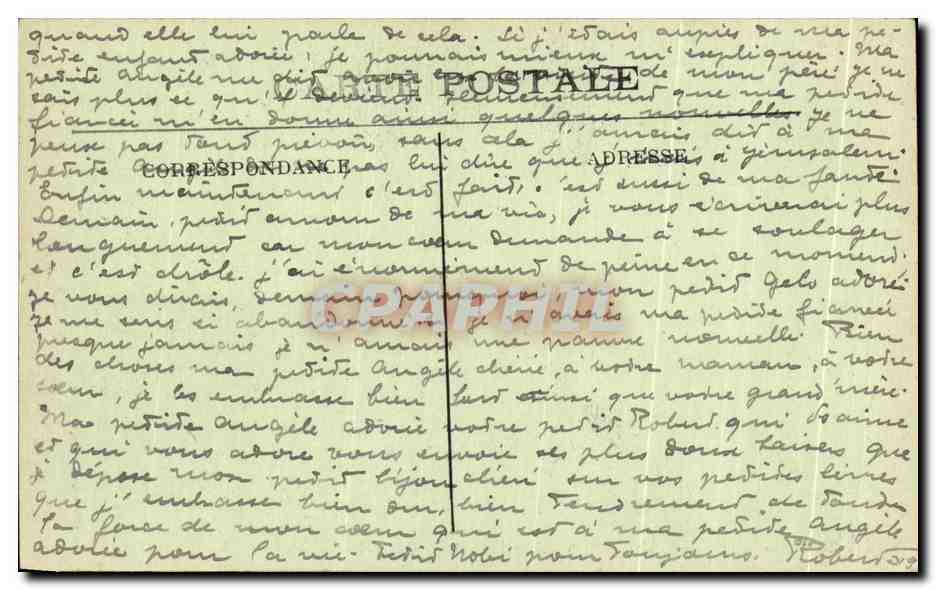 quand elle lui parle de cela. Si j'étais auprès de ma pe-
tite enfant adorée, je pourrais mieux m'expliquer. Ma
petite Angèle me dit de mon père je ne
CARTE POSTALE
sais plus ce qu'il devient. Heureusement que ma petite
fiancée m'en donne aussi quelques nouvelles. je ne
peux pas tout prévoir, sans cela j'aurais dit à ma
petite Angèle de ne pas lui dire que j'étais à Jérusalem.
CORRESPONDANCE ADRESSE
Enfin maintenant c'est fait, c'est aussi de ma faute.
Demain, petit amour de ma vie, je vous écrirerai plus
longuement car mon cœur demande à se soulager
et c'est drôle. j'ai énormément de peine en ce moment.
je vous dirais demain pourquoi mon petit Gelo adoré
CPAPHIL
je me sens si abandonné. si je n'avais ma petite fiancée
presque jamais je n'aurais une pauvre nouvelle. Bien
des choses ma petite Angèle chérie, à votre maman, à votre
sœur, je les embrasse bien fort ainsi que votre grand'mère.
Ma petite Angèle adorée votre petit Robert qui vous aime
et qui vous adore vous envoie ses plus doux baisers que
je dépose mon petit bijou chéri sur vos petites lèvres
que j'embrasse bien dur, bien tendrement de toute
la force de mon cœur qui est à ma petite Angèle
adorée pour la vie. Petit Robi pour toujours. Robert